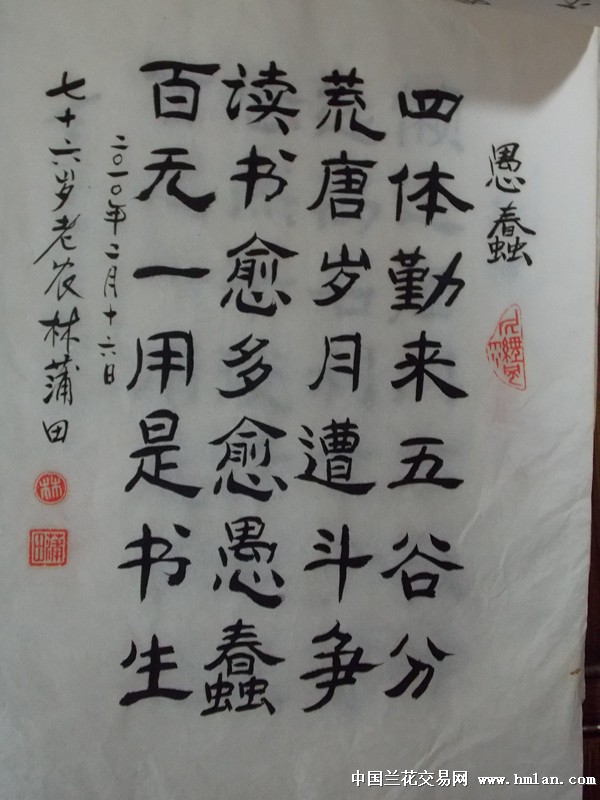 愚蠢
四体勤来五谷分
荒唐岁月遭斗争
读书愈多愈愚蠢
百无一用是书生
二〇一〇年二月十六日
七十六岁老农林蒲田
林
蒲田
中国兰花交易网 www.hmlan.com